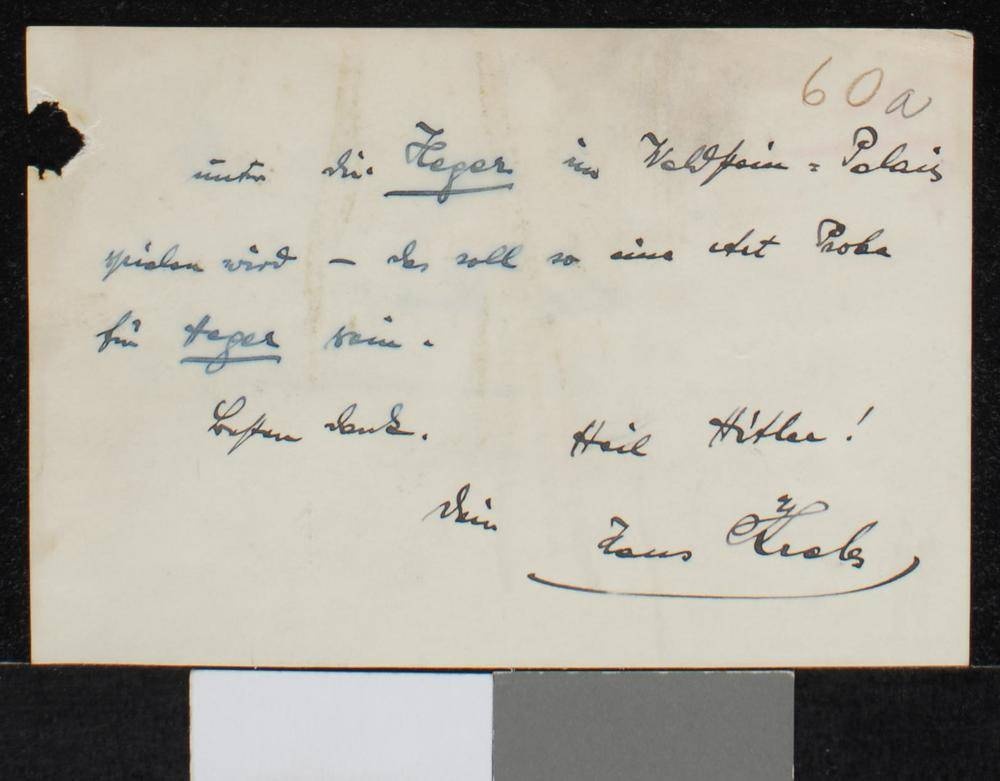 60a
unter die Heger im Waldstein = Palais
spielen wird – das soll so eine Art Probe
für Heger sein.
Besten Dank.
Heil Hitler!
Dein
Hans Krebs